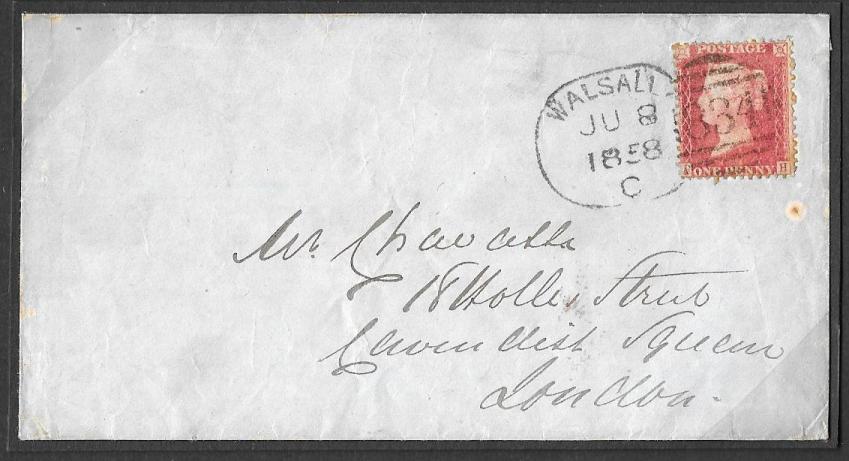 POSTAGE
WALSALL
JU 8
1858
C
834
ONE PENNY H
Mr.
18 Holles Street
Cavendish Square
London.